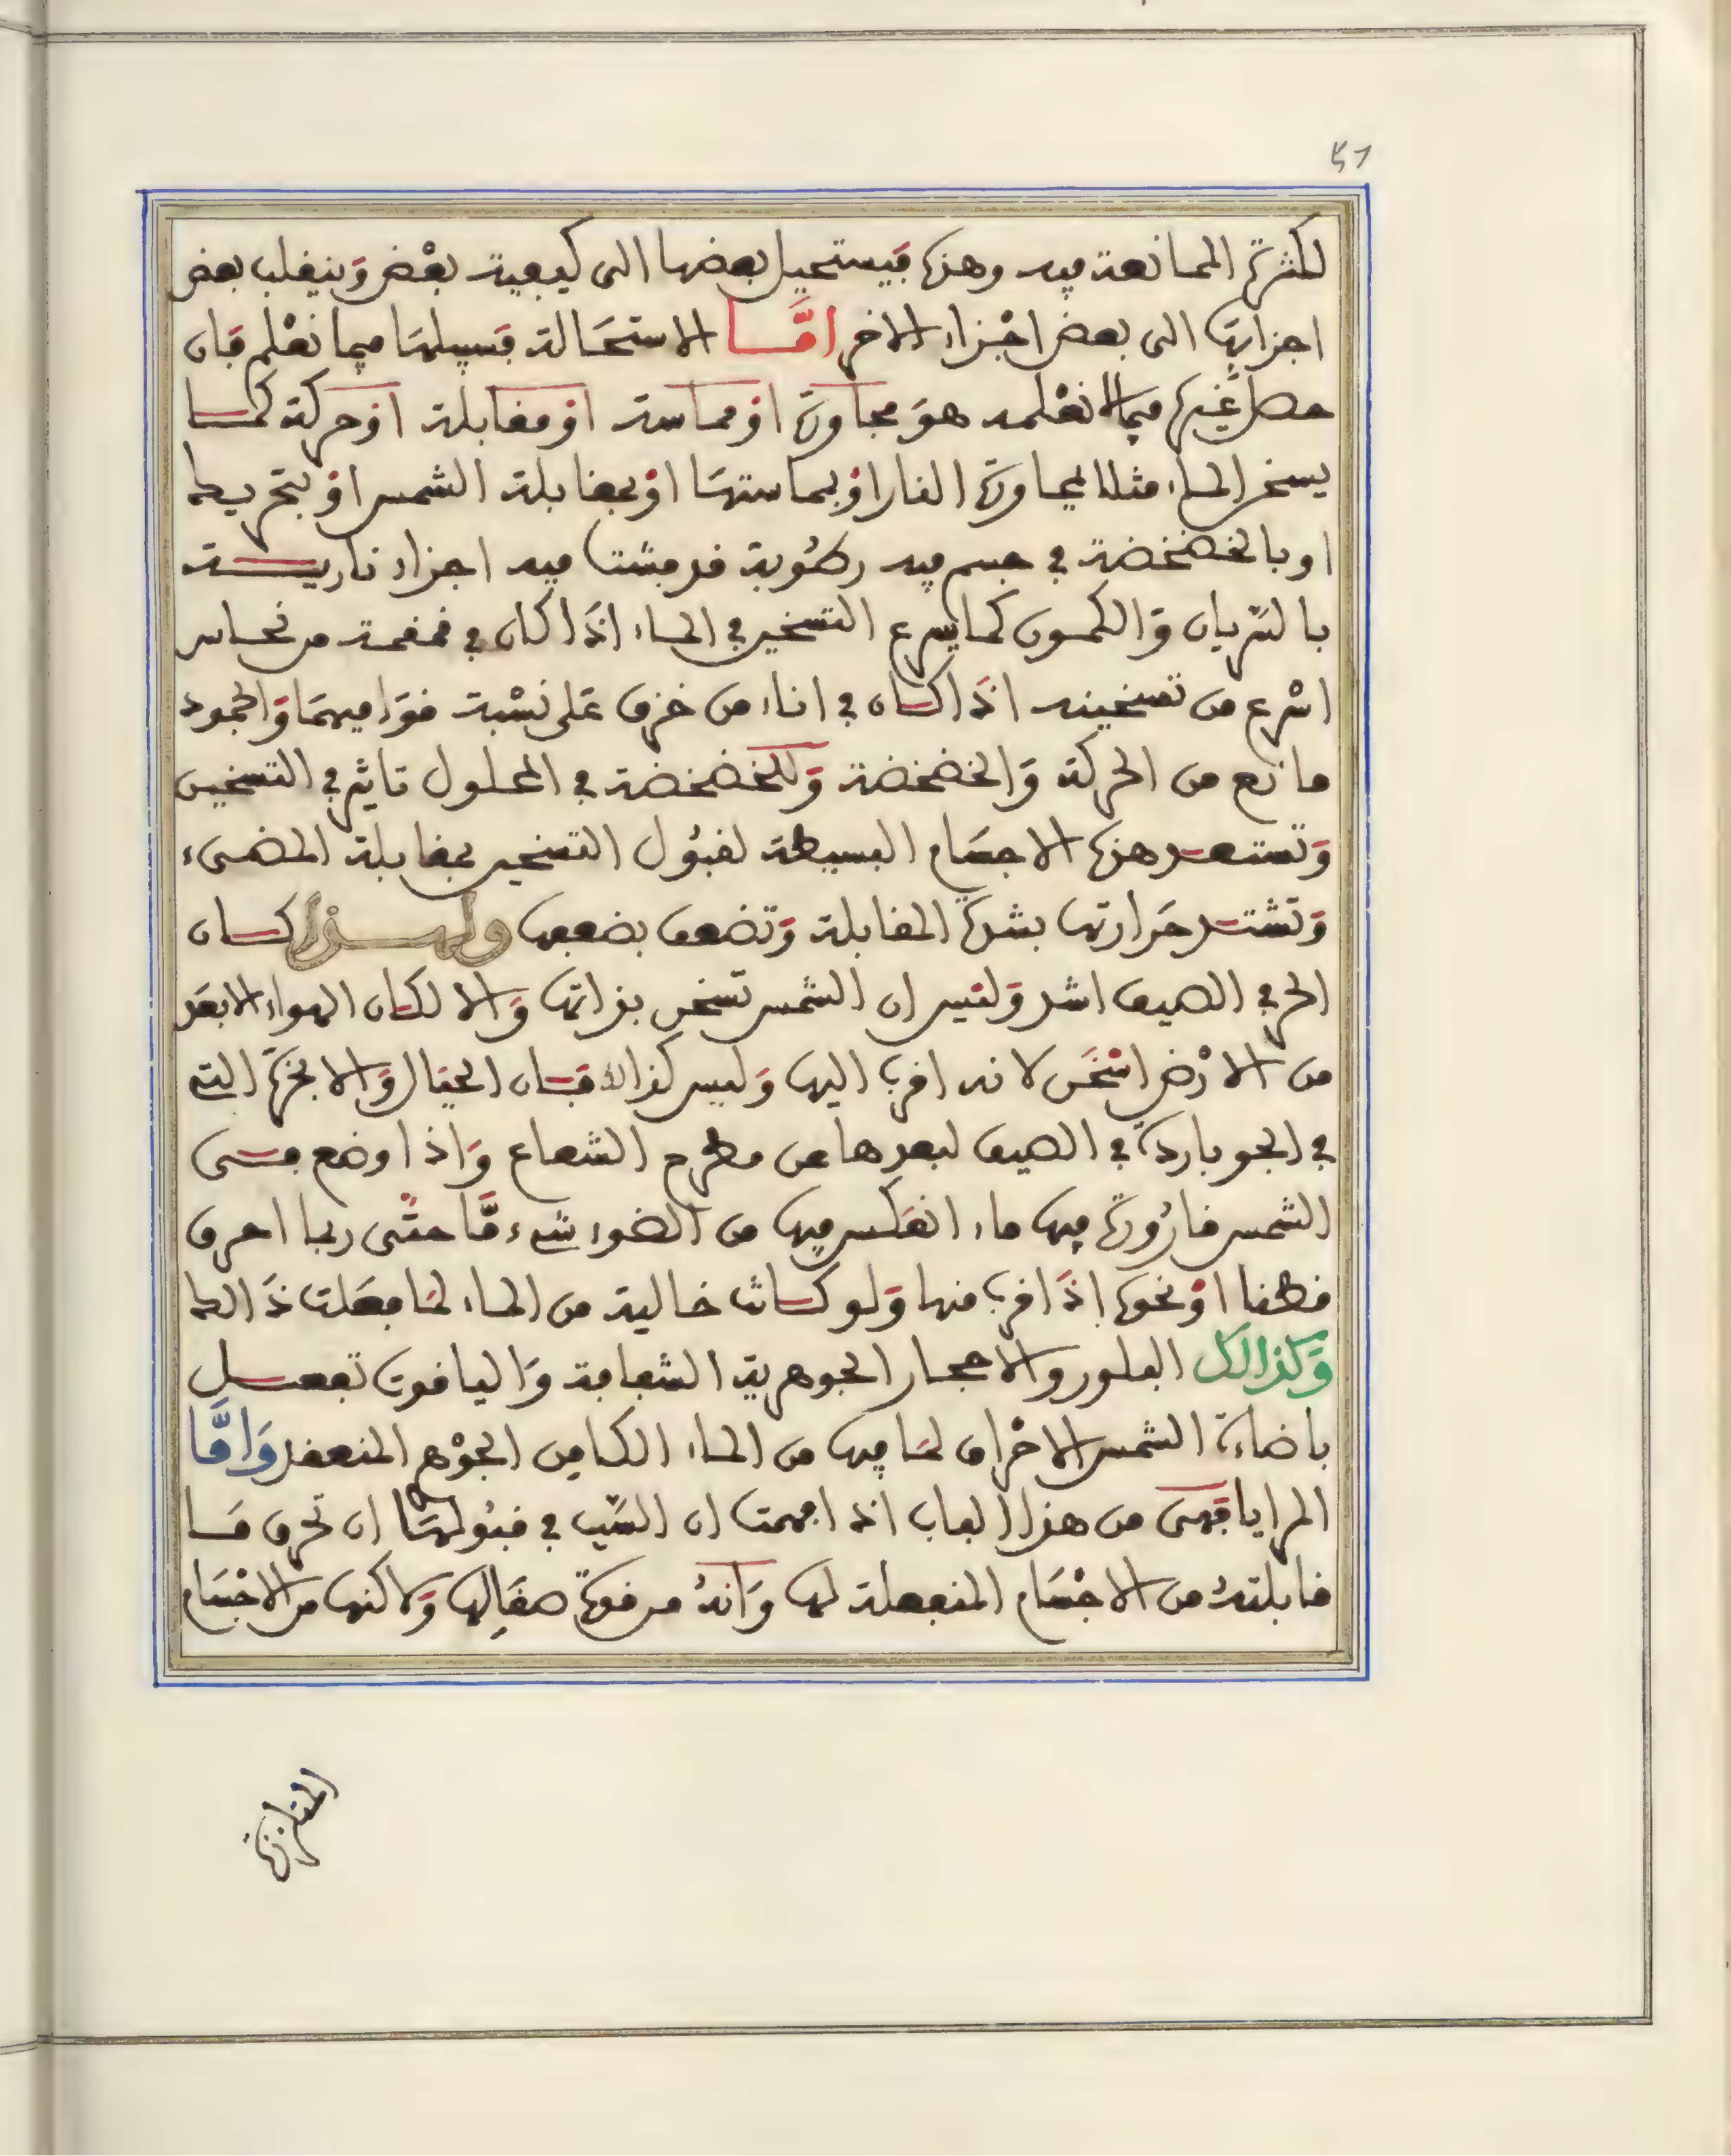 51
لكثرة الممانعة فيه وهذه فيستحيل بعضها الى كيفية بعض وينقلب بعض
اجزايها الى بعض اجزاء الاخر امّا الاستحالة فسبيلها فيما نعلم فان
حصل غيرها فيما لا نعلمه هو مجاورة او مماسة او مقابلة او حركة كما
يسخن الماء مثلا لمجاورة النار او بمماستها او بمقابلة الشمس او بتحريكه
او بالخضخضة في جسم فيه رطوبة قد فشت فيه اجزاء نارية
بالسريان والكمون كما يسرع التسخين في الماء اذا كان في قمقمة من نحاس
اسرع من تسخينه اذا كان في اناء من خزف على نسبة قواميهما والجمود
مانع من الحركة والخضخضة وللخضخضة في المحلول تاثير في التسخين
وتستعد هذه الاجسام البسيطة لقبول التسخين بمقابلة المضيء
وتشتد حرارتها بشدة المقابلة وتضعف بضعفها ولهذا كان
الحر في الصيف اشد وليس ان الشمس تسخن بذاتها والا لكان الهواء الابعد
من الارض اسخن لانه اقرب اليها وليس كذالك فان الجبال والابخرة التي
في الجو باردة في الصيف لبعدها عن مطرح الشعاع واذا وضع في
الشمس قارورة فيها ماء انعكس فيها من الضوء شيء مّا حتى ربما احرق
قطنا او نحوه اذا قرب منها ولو كانت خالية من الماء لما فعلت ذالك
وكذالك البلور والاحجار الجوهرية الشفافة والياقوت تفعل
باضاءة الشمس الاحراق لما فيها من الماء الكامن الجوهر المنعقد وامّا
المرايا فهي من هذا الباب اذا فهمت ان السبب في قبولها ان تحرق ما
قابلته من الاجسام المنفعلة لها وانه من قوة صقالها ولاكنها من الاجسام
المتلززة